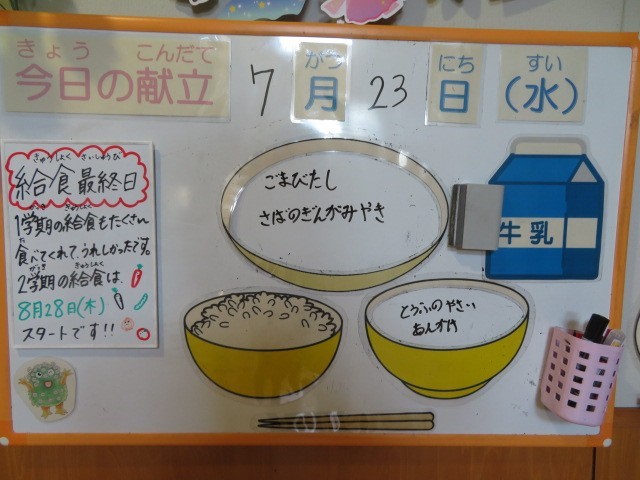 きょう こんだて
今日の献立
7
がつ
月
23
にち
日
すい
(水)
きゅうしょく さいしゅうび
給食最終日
1学期の給食もたくさん
食べてくれて、うれしかったです。
2学期の給食は
8月28日(木)
スタートです!!
ごまびたし
さばのぎんがみやき
牛乳
とうふのやさい
あんかけ